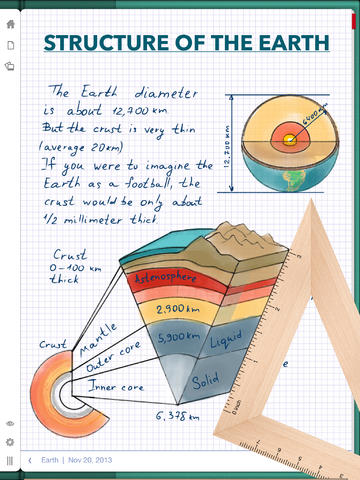 STRUCTURE OF THE EARTH
The Earth diameter
is about 12,700 km
But the crust is very thin
(average 20km)
If you were to imagine the
Earth as a football, the
crust would be only about
1/2 millimeter thick.
12,700 km
6400 km
Crust
0-100 km
thick
Astenosphere
2,900 km
5,900 km
Liquid
Solid
Crust
Mantle
Outer core
Inner core
6,378 km
e
0 inch
1
2
3
7
6
5
Earth | Nov 20, 2013